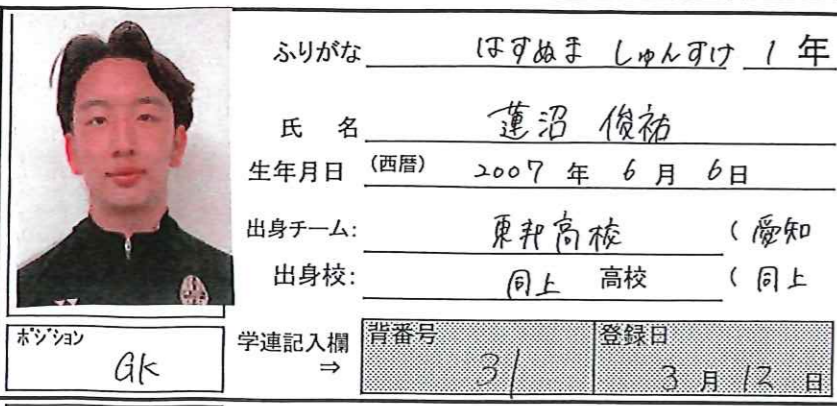 ふりがな はすぬま しゅんすけ 1 年
氏 名 蓮沼 俊祐
生年月日 (西暦) 2007 年 6 月 6 日
出身チーム: 東邦高校 ( 愛知
出身校: 同上 高校 ( 同上
ポジション
GK
学連記入欄
⇒
背番号
31
登録日
3 月 12 日